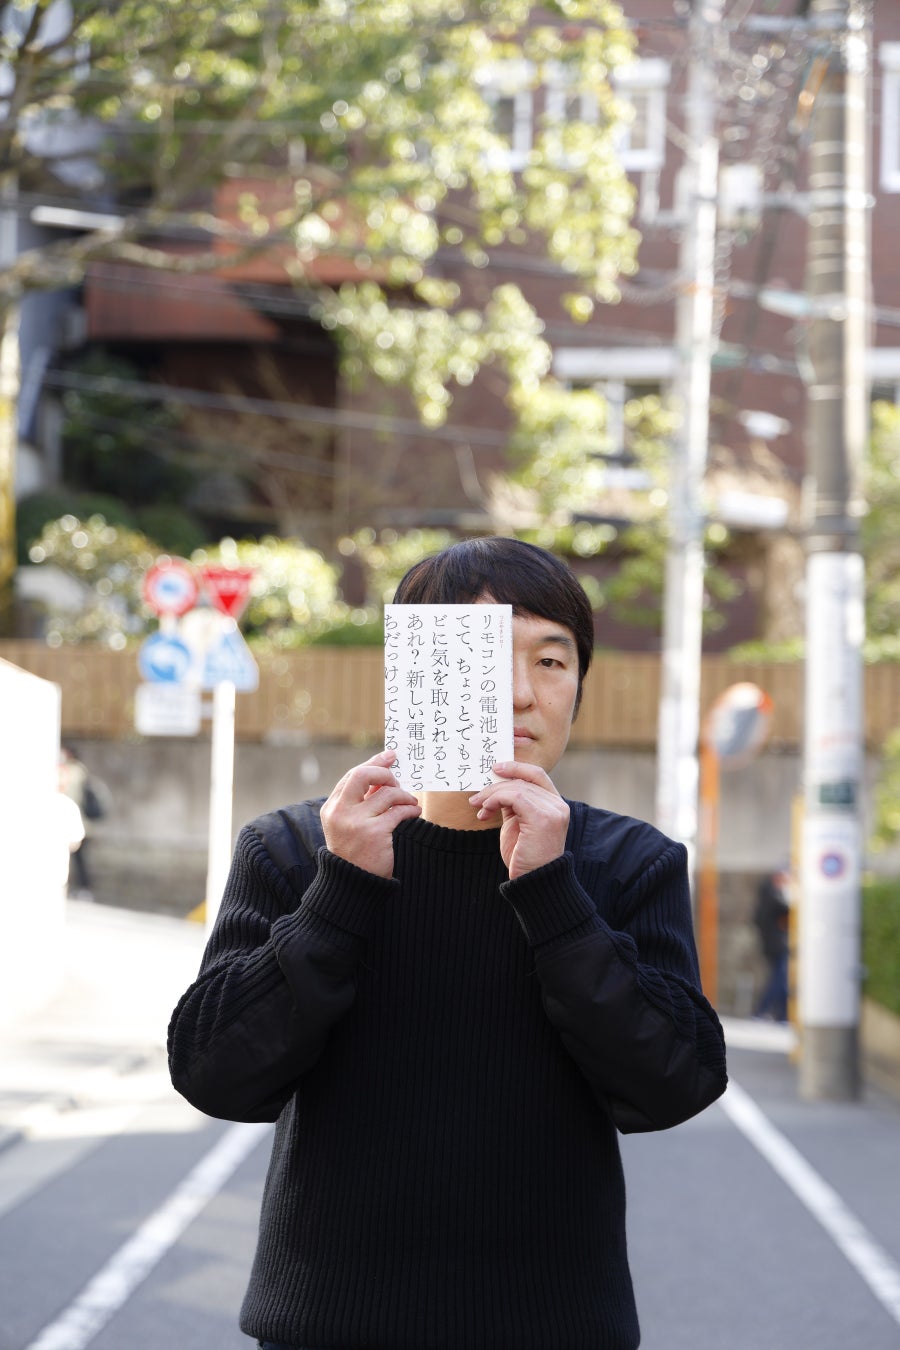 リモコンの電池を換え
てて、ちょっとでもテレ
ビに気を取られると、
あれ？新しい電池どっ
ちだっけってなるね。